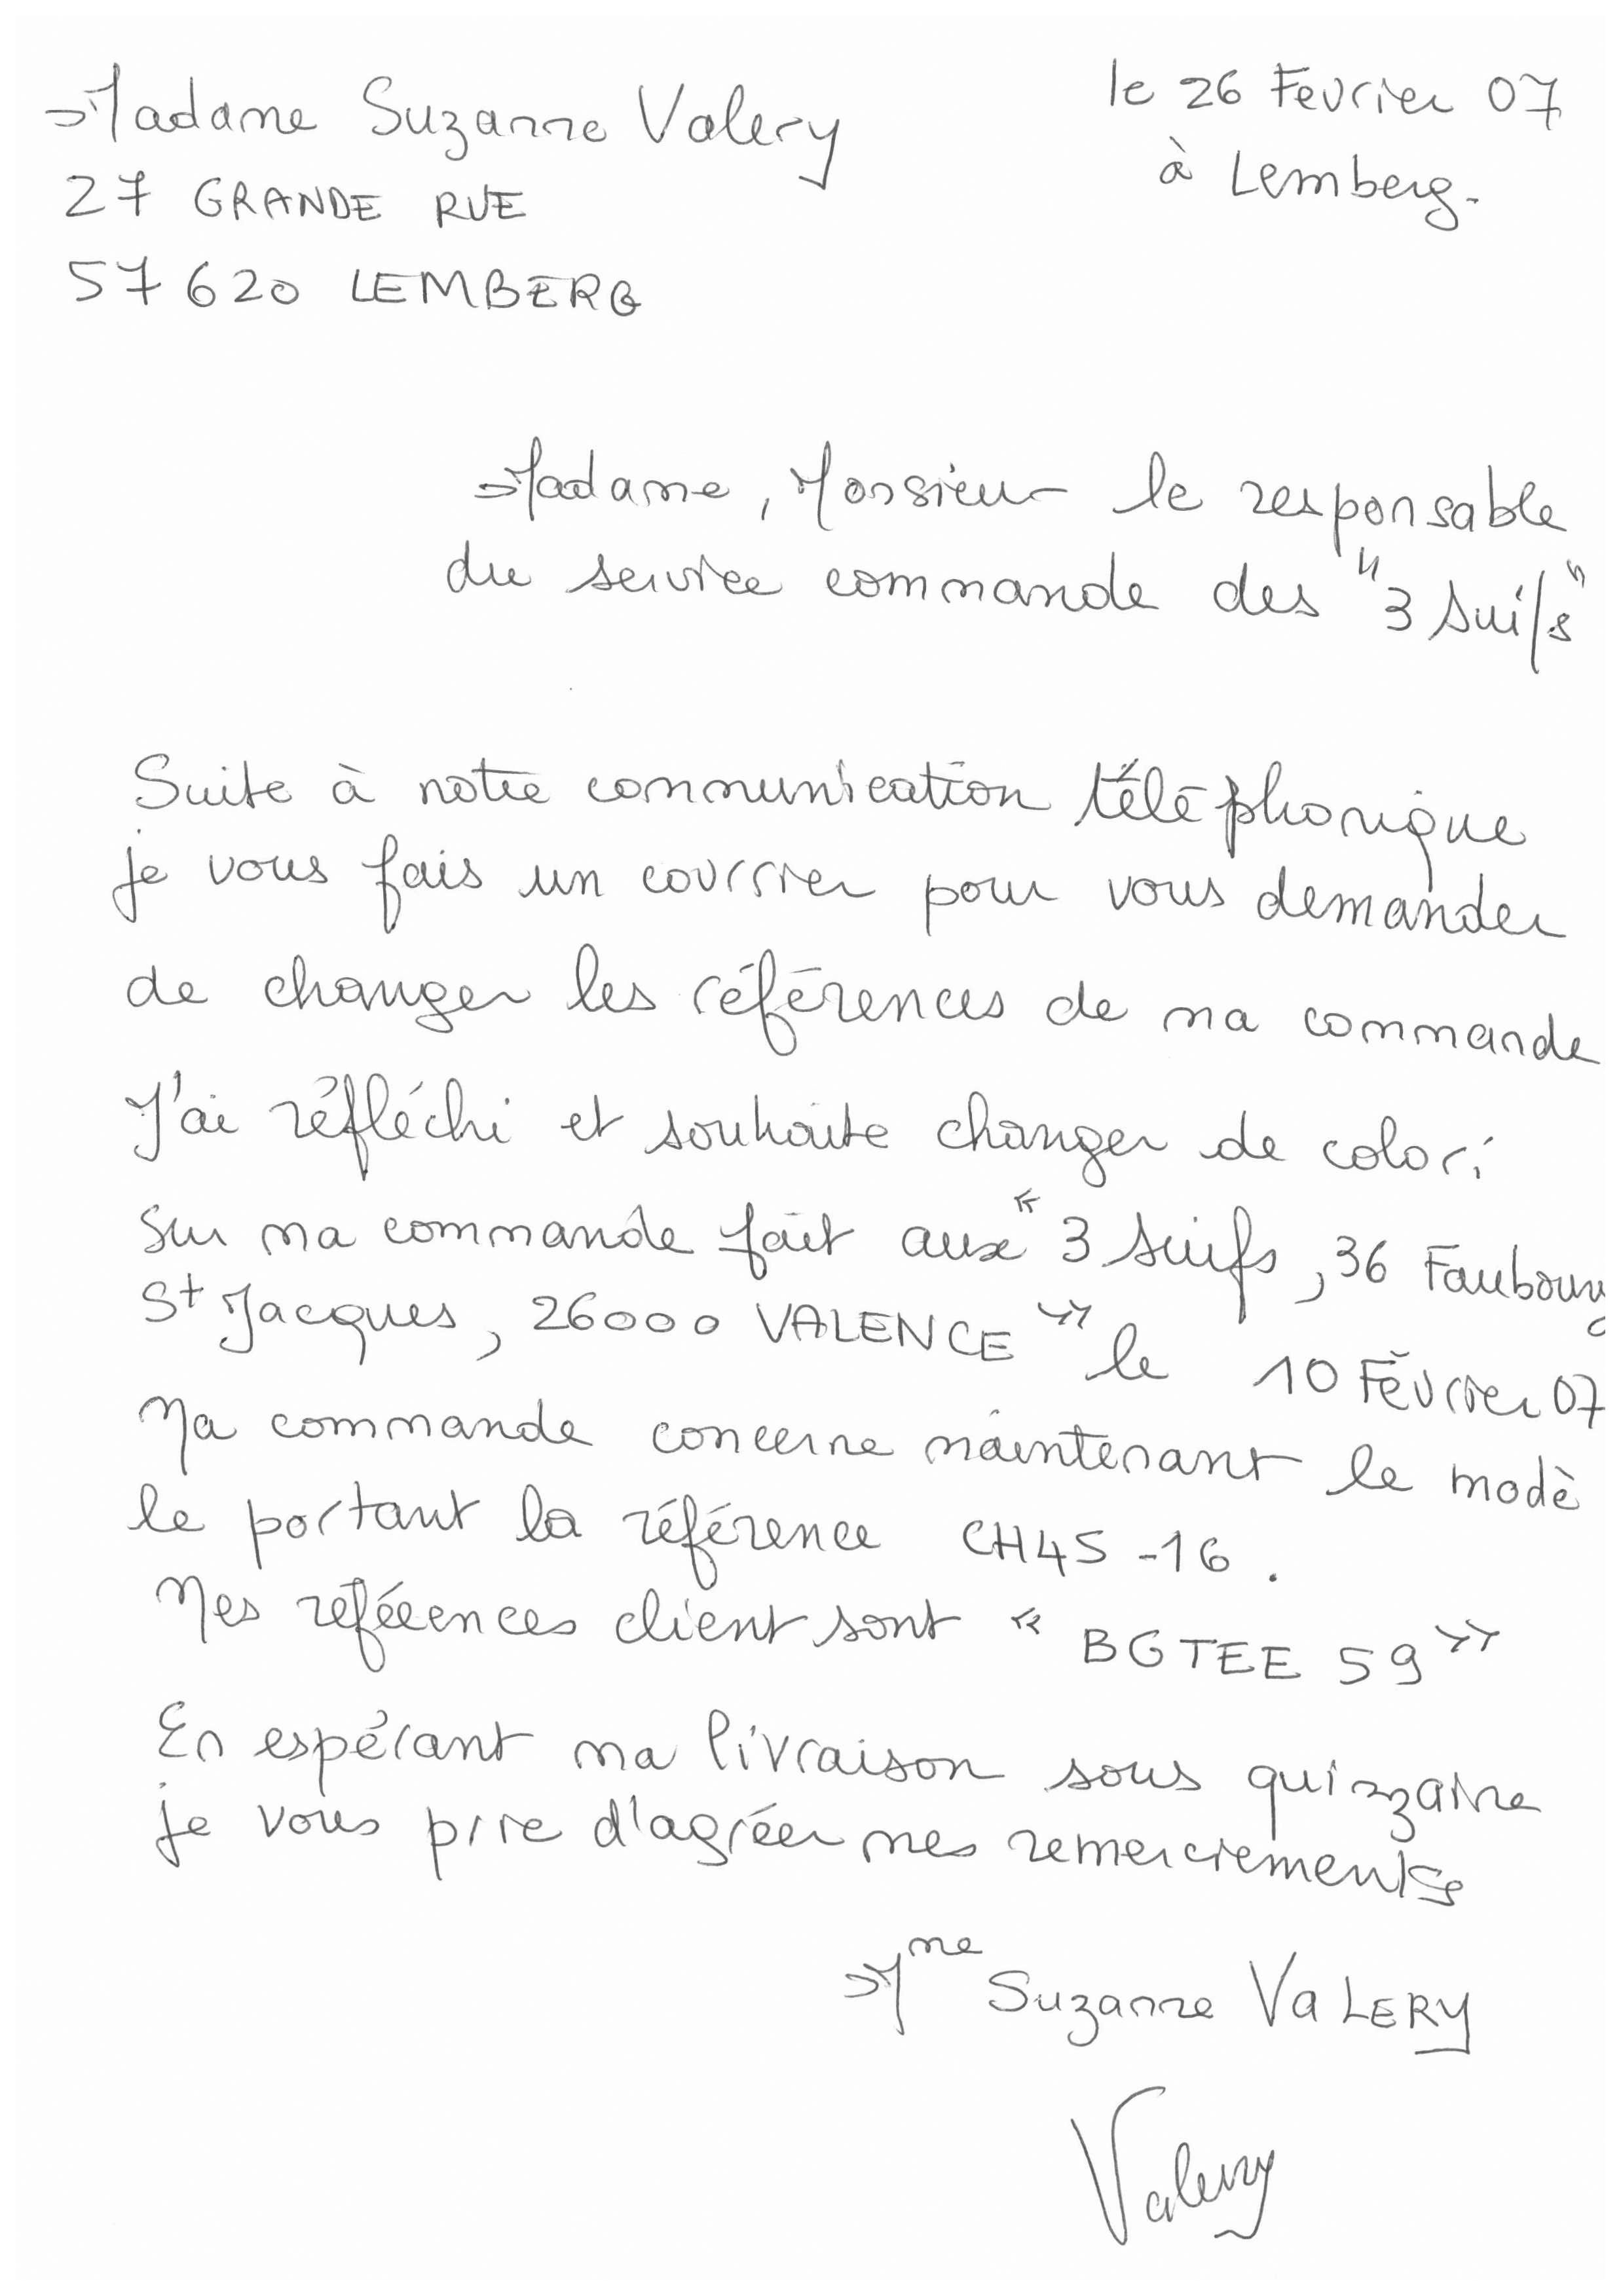 Madame Suzanne Valery
le 26 Fevrier 07
27 GRANDE RUE
à Lemberg.
57620 LEMBERG
Madame, Monsieur le responsable
du service commande des "3 suifs"
Suite à notre communication téléphonique
je vous fais un courrier pour vous demander
de changer les références de ma commande
J'ai réfléchi et souhaite changer de colori
sur ma commande fait aux « 3 suifs, 36 Faubourg
St Jacques, 26000 VALENCE » le 10 Février 07
Ma commande concerne maintenant le modè
le portant la référence CH45-16.
Mes reféeences client sont « BGTEE 59 »
En espérant ma livraison sous quinzaine
je vous prie d'agréer mes remerciements
Mme Suzanne VaLERY
Valery